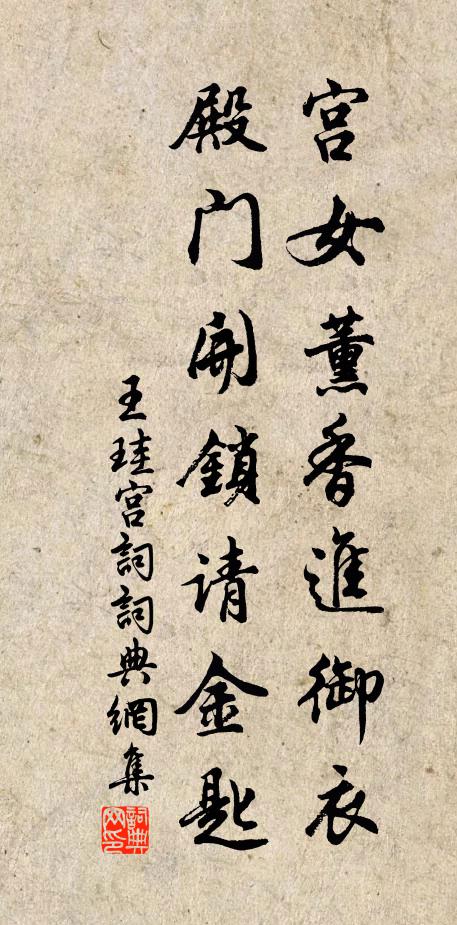 宫女薰香進御衣
殿门開鎖请金匙
王珪宫詞詞典網集
詞典网印